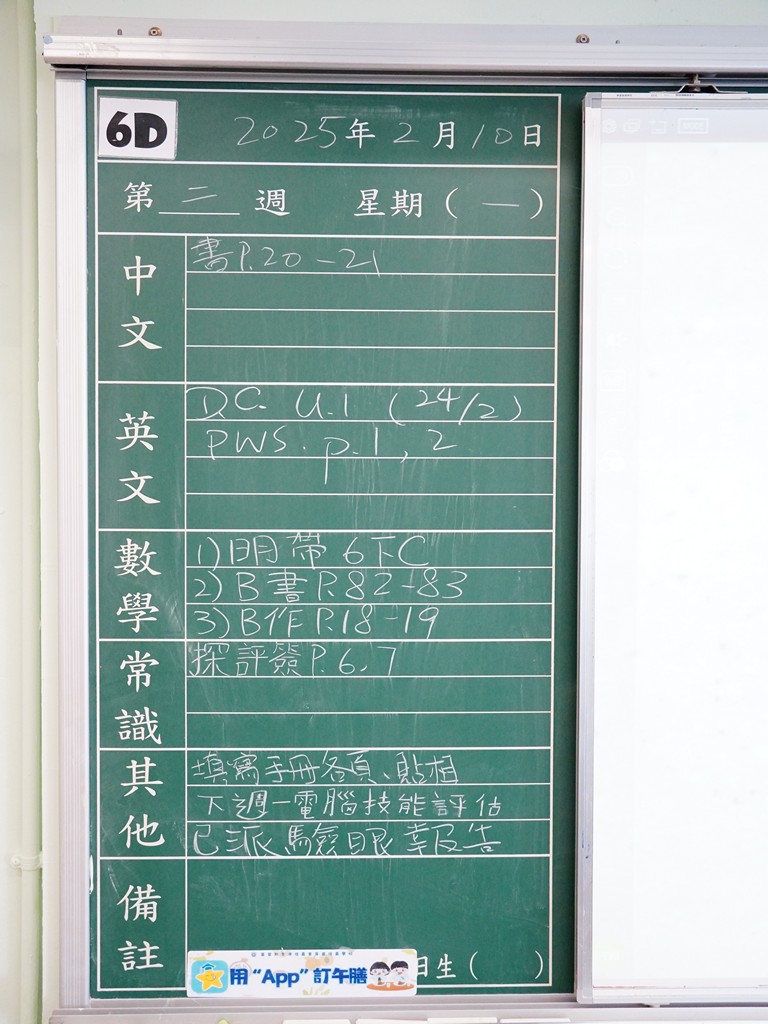 6D 2025年2月10日
第二週 星期(一)
中文
書P.20-21
英文
D.C. U.1 (24/2)
PWS. p.1, 2
數學
1)明帶6下C
2)B書P.82-83
3)B作P.18-19
常識
探評簽P.6,7
其他
填寫手冊各頁、貼相
下週一電腦技能評估
已派驗眼報告
備註
用“App”訂午膳
日生( )